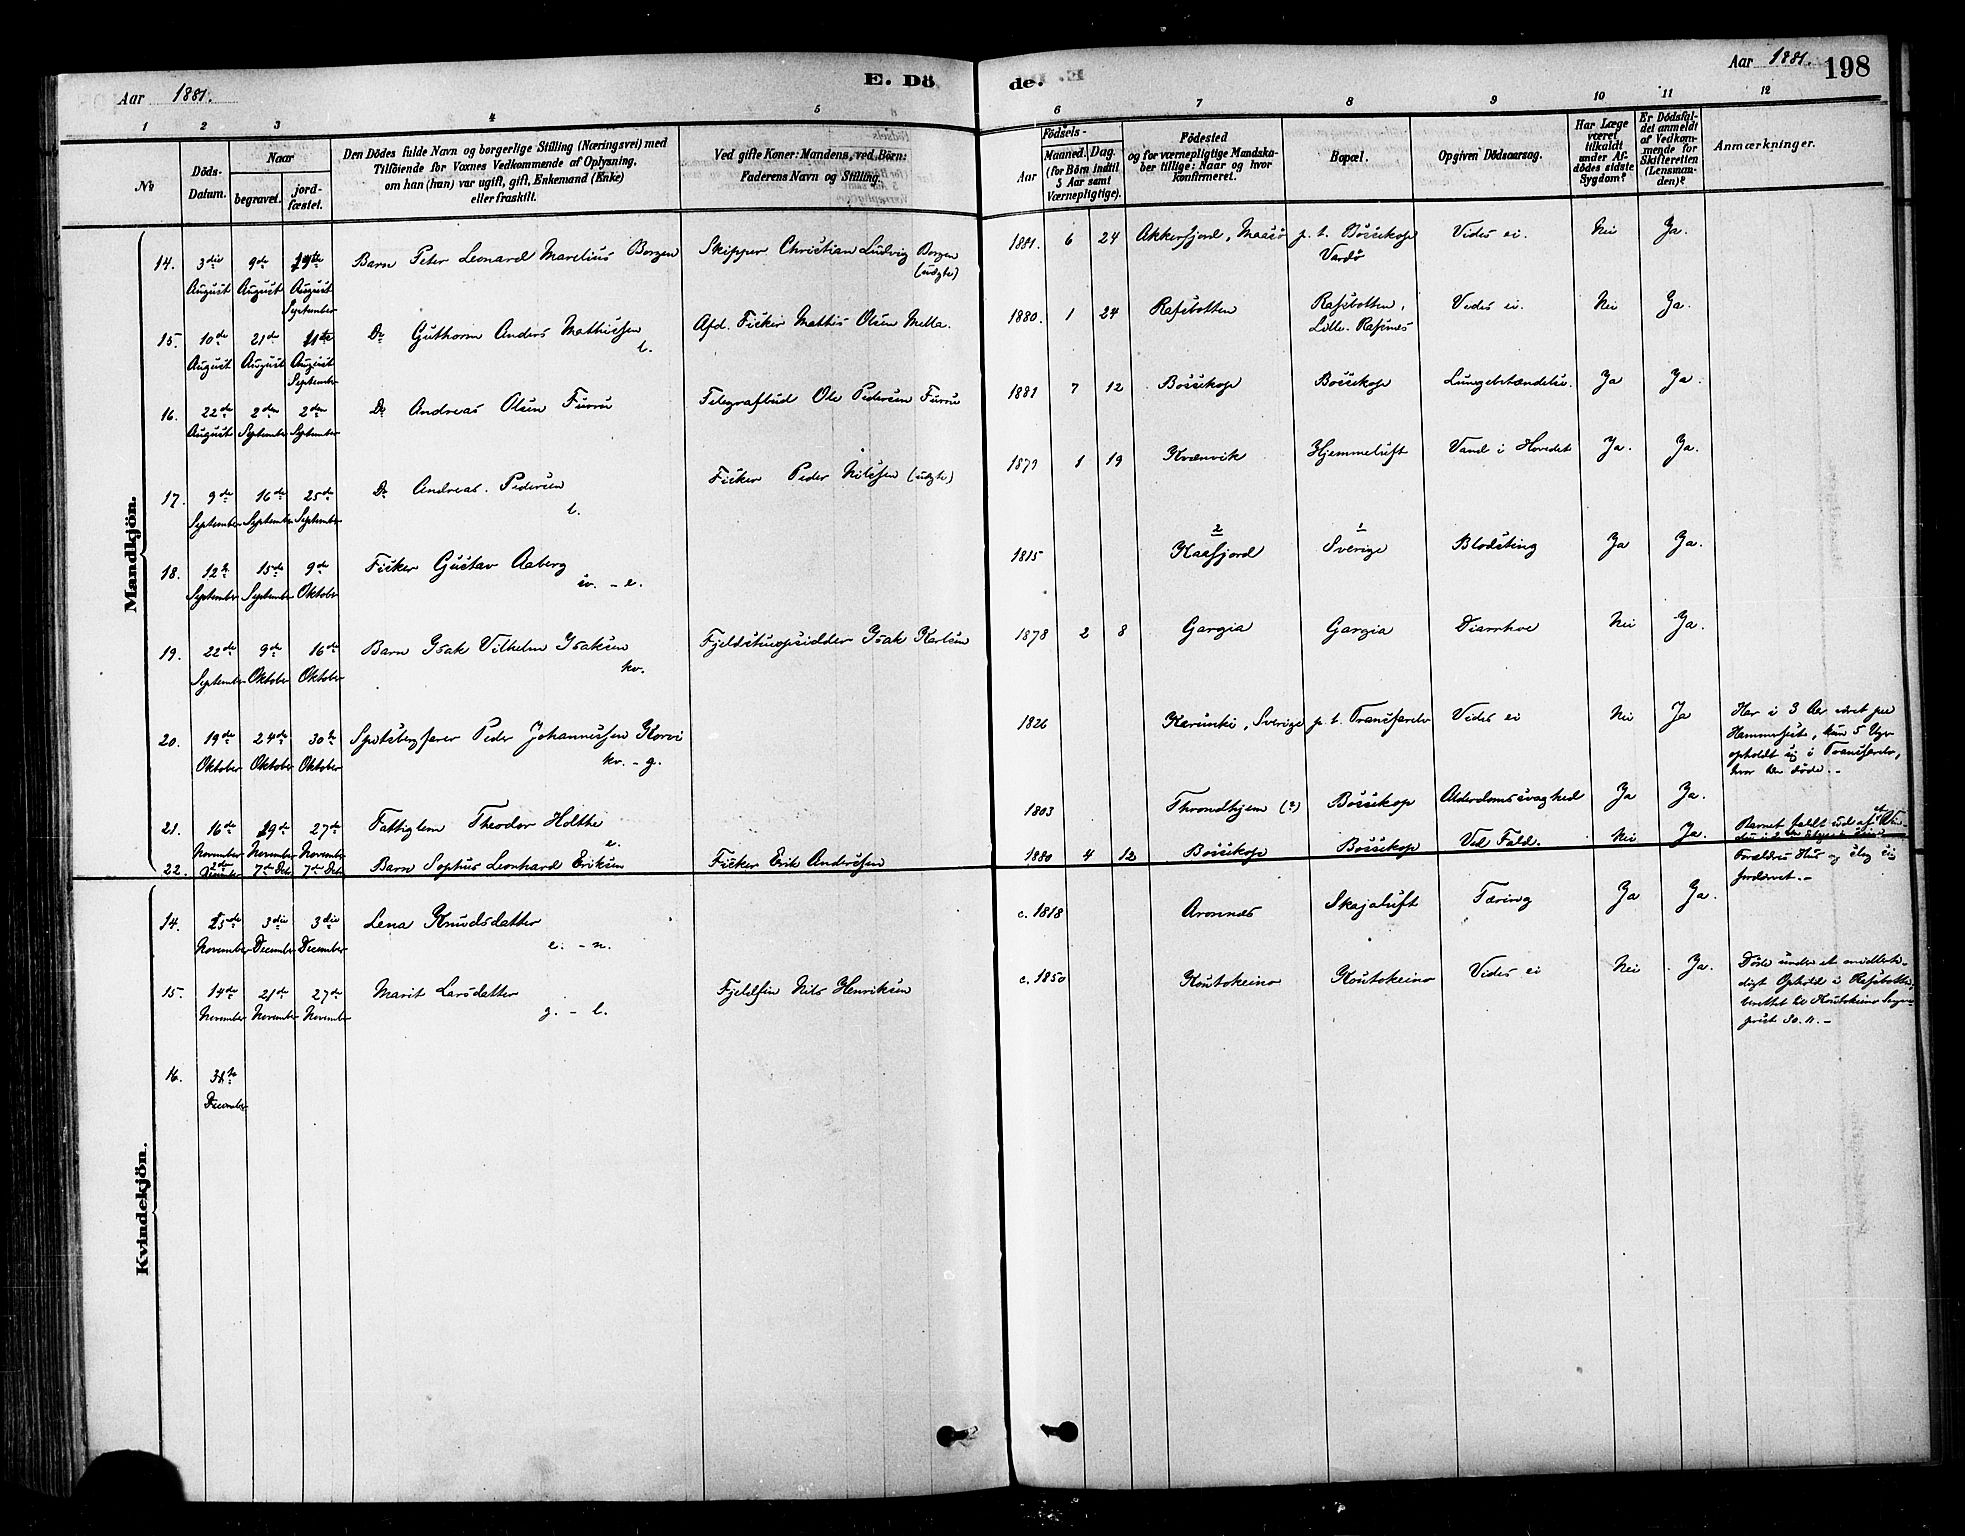 Aar 1881.
E. Dö
de.
Aar 1881.
198
1 2 3 4 5 6 7 8 9 10 11 12
No
Döds-
Datum.
Naar
begravet.
jord-
fæstet.
Den Dödes fulde Navn og borgerlige Stilling (Næringsvei) med
Tilföiende for Voxnes Vedkommende af Oplysning,
om han (hun) var ugift, gift, Enkemand (Enke)
eller fraskilt.
Ved gifte Koner: Mandens, ved Börn:
Faderens Navn og Stilling.
Födsels-
Aar
Maaned. Dag.
(for Börn indtil
5 Aar samt
Værnepligtige).
Födested
og for værnepligtige Mandska-
ber tillige: Naar og hvor
konfirmeret.
Bopæl.
Opgiven Dödsaarsag.
Har Læge
været
tilkaldt
under Af-
dödes sidste
Sygdom?
Er Dödsfal-
det anmeldt
af Vedkom-
mende for
Skifteretten
(Lensman-
den)?
Anmærkninger.
Mandkjön.
14. 3die August 9de August August September Barn Peter Leonard Marelius Borgen Skipper Christian Ludvig Borgen (udgte) 1881. 6 24 Akkerfjord, Maasø p. t. Bossekop Vardø Vides ei. Nei Ja.
15. 10de August 21de August 11te August September Do Guthorm Anders Mathissen l. Afd. Fisker Mathis Olsen Mella. 1880. 1 24 Rafsbotten Rafsbotten, Lille-Rafsnes Vides ei. Nei Ja.
16. 22de August 2den September 2den September Do Andreas Olsen Furru Telegrafbud Ole Pedersen Furru 1881 7 12 Bossekop Bossekop Lungebetændelse. Ja Ja.
17. 9de September 16de September 25de September Do Andreas. Pedersen l. Fisker Peder Nilssen (udgte) 1879 1 19 Kvænvik Hjemmeluft Vand i Hovedet Ja. Ja.
18. 12te September 15de September 9de Oktober Fisker Gustav Aaberg sv. - e. 1815 2 Kaafjord 1 Sverige Blodsting Ja Ja.
19. 22de September 9de Oktober 16de Oktober Barn Isak Vilhelm Isaksen kv. Fjeldstueopsidder Isak Karlsen 1878 2 8 Gargia Gargia Diarrhoe Nei Ja.
20. 19de Oktober 24de Oktober 30te Oktober Spitsbergfarer Peder Johannessen Korvi kv. - g. 1826 Karunki, Sverige p. t. Transfarelv Vides ei Nei Ja
Har i 3 Aar været paa
Hammerfeste, kun 5 Uger
opholdt sig i Transfarelv,
hvor han døde. -
21. 16de November 19de November 27de November Fattiglem Theodor Holthe e. 1803 Throndhjem (?) Bossekop Alderdomssvaghed Ja Ja.
22. 2den December 7de Dec. 7de Dec. Barn Sophus Leonhard Eriksen Fisker Erik Anderssen 1880 4 12 Bossekop Bossekop Ved Fald. Nei Ja.
Barnet faldt ud af et Vin-
due i 2den Etage i sine
Forældres Hus og slog sig
fordærvet. -
Kvindekjön.
14. 25de November 3die December 3die December Lena Knudsdatter e. - n. c. 1818 Aronnæs Skajaluft Tæring Ja Ja.
15. 14de November 21de November 27de November Marit Larsdatter g. - l. Fjeldfin Nils Henriksen c. 1850 Koutokeino Koutokeino Vides ei Nei Ja.
Døde under et midlerti-
digt Ophold i Rafsbotten,
berettet til Koutokeino Sogne-
prest
16. 31te December